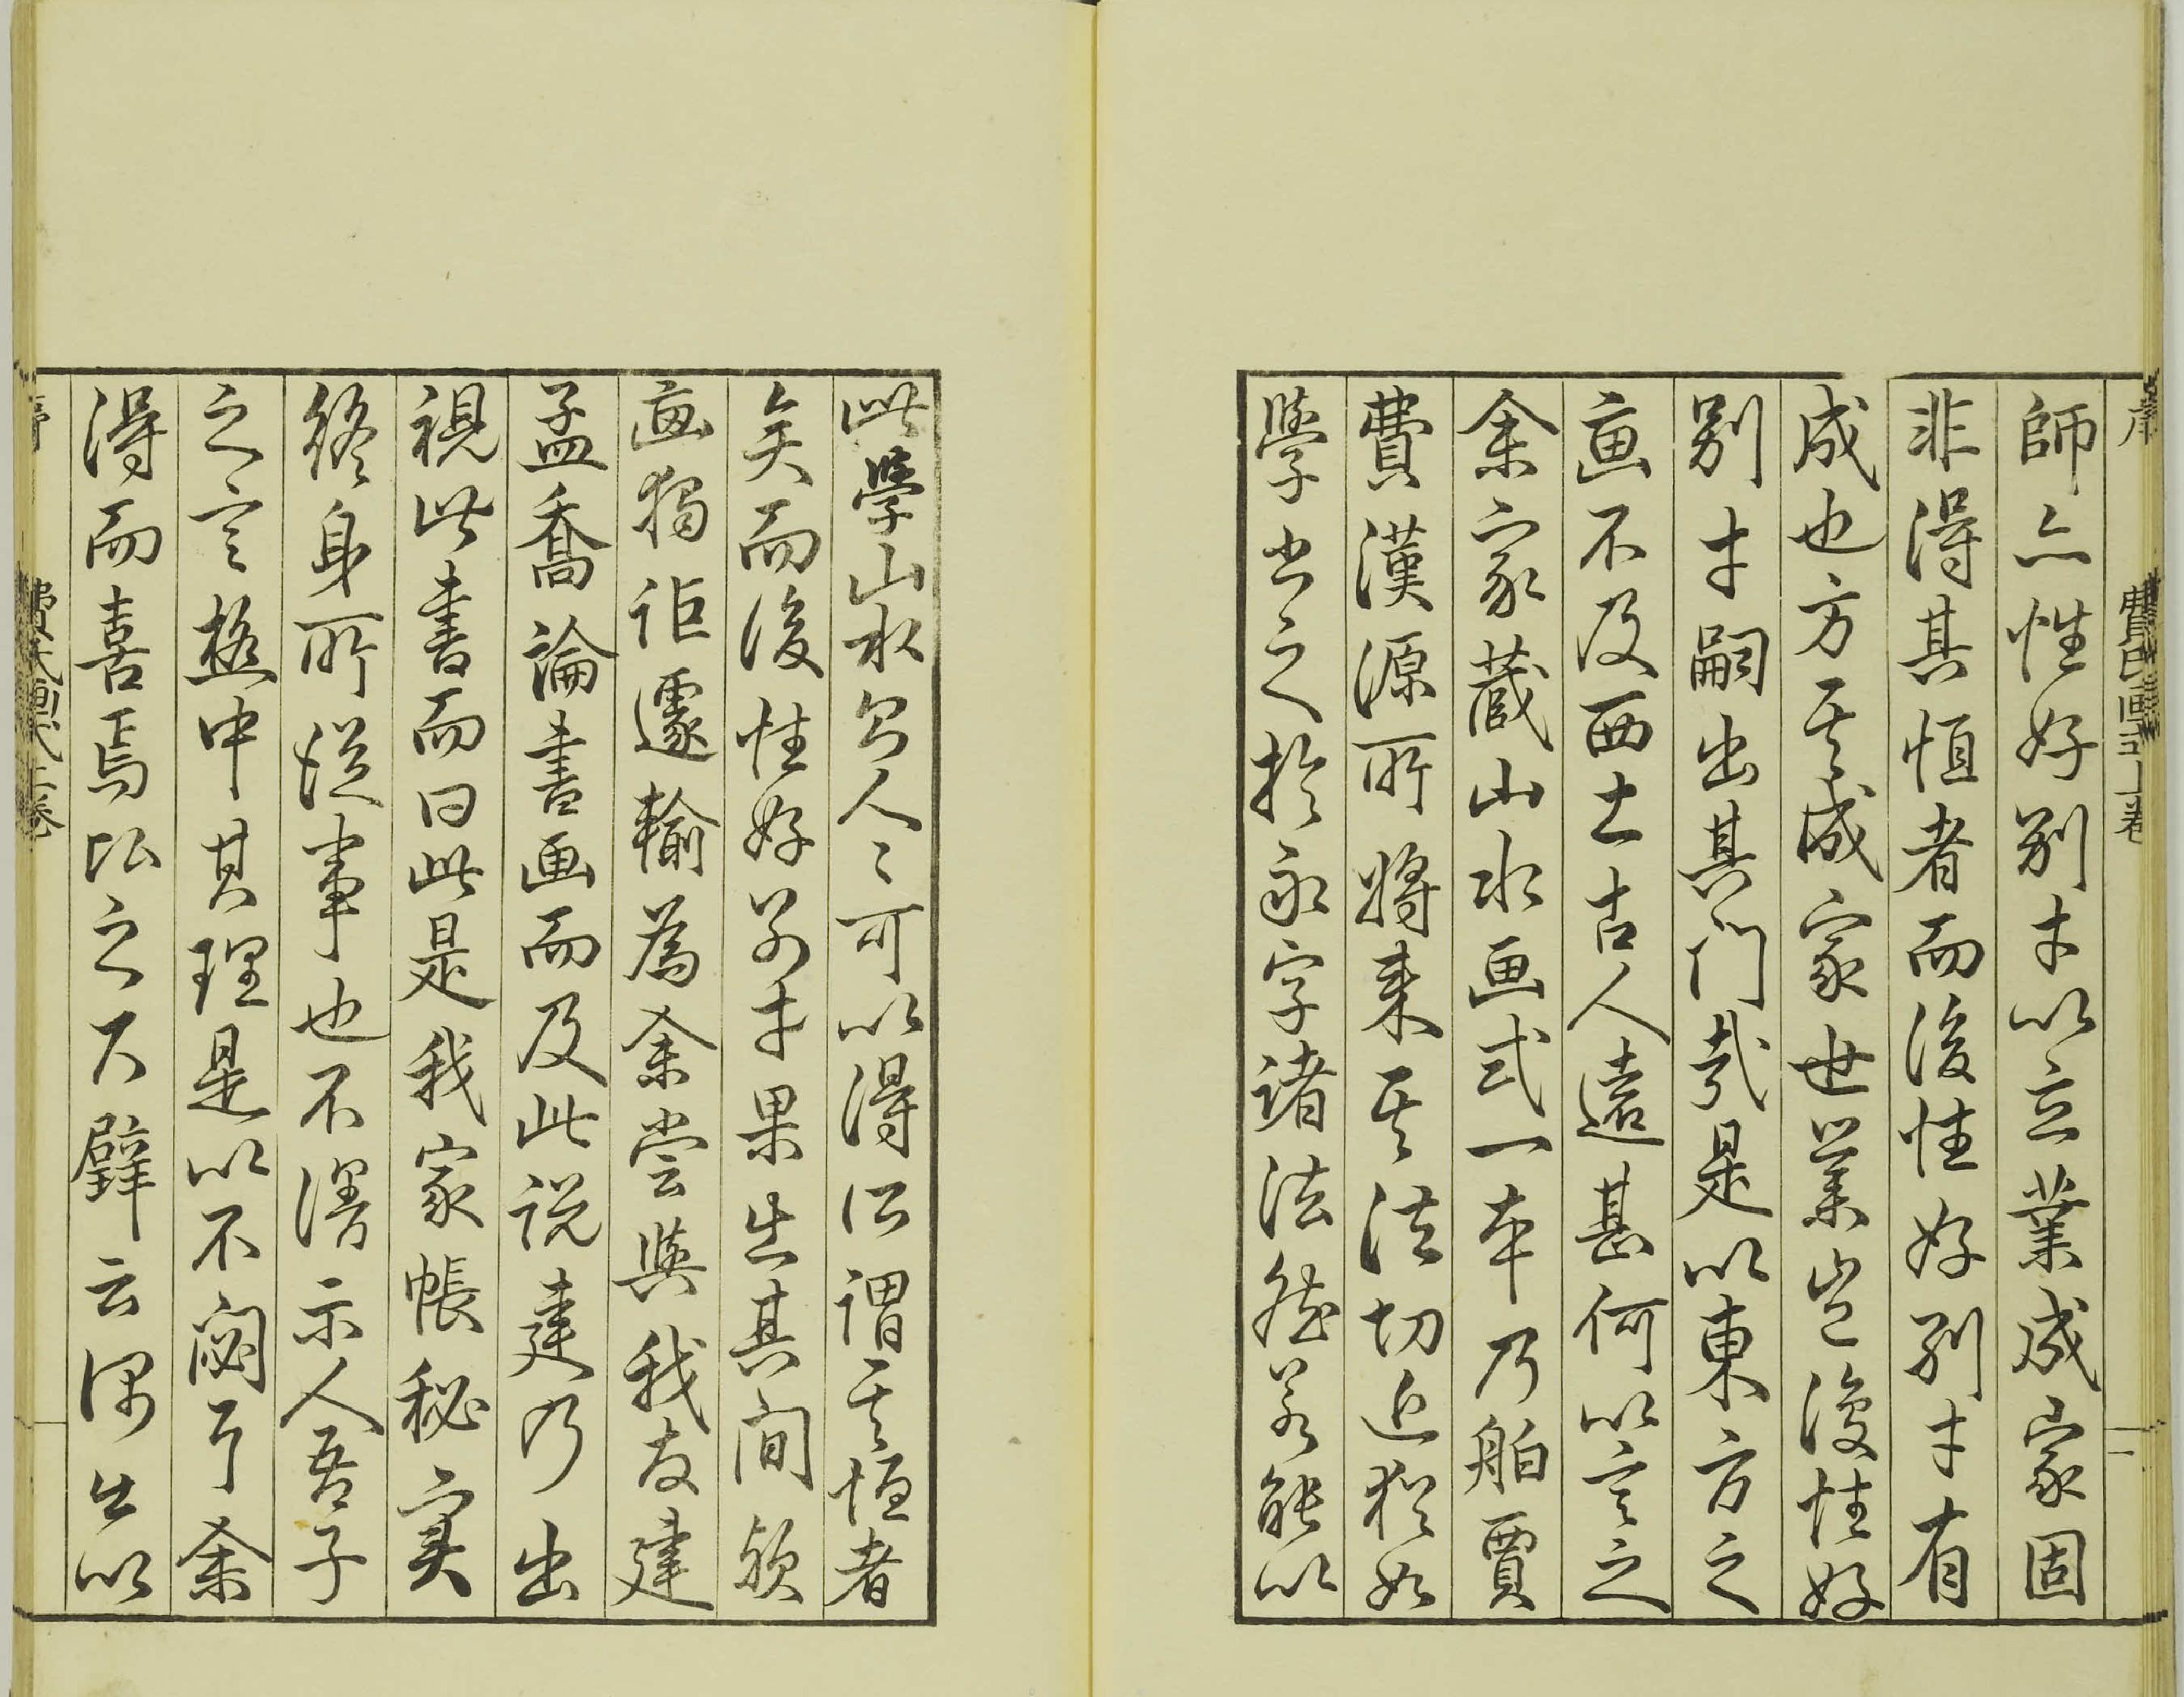 序 費氏画式上卷 二
師亦性好別才以立業成家固
非得其恒者而後性好別才有
成也方其成家世業豈復性好
別才嗣出其門哉是以東方之
画不及西土古人遠甚何以言之
余家蔵山水画式一本乃舶賈
費漢源所將来其法切近猶如
學書之於永字諸法然若能以
此學山水則人〻可以得所謂其恒者
矣而後性好別才果出其間
画獨詎遽輸為余嘗與我友建
孟喬論書画而及此説建乃出
視此書而曰此是我家帳秘実
終身所從事也不得示人吾子
之言極中其理是以不閟了余
得而喜焉比之尺璧云偶出以